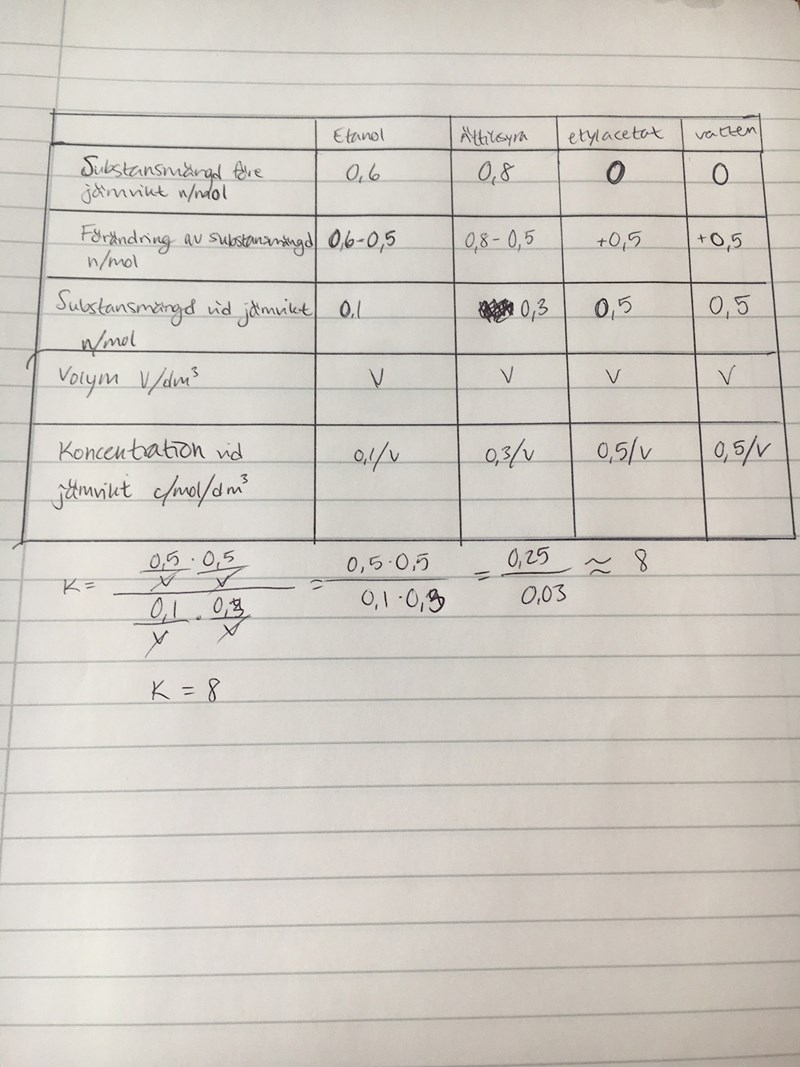 Etanol Ättiksyra etylacetat vatten
Substansmängd före
jämvikt n/mol 0,6 0,8 0 0
Förändring av substansmängd 0,6-0,5 0,8-0,5 +0,5 +0,5
n/mol
Substansmängd vid jämvikt 0,1 0,3 0,5 0,5
n/mol
Volym V/dm³ V V V V
Koncentration vid 0,1/V 0,3/V 0,5/V 0,5/V
jämvikt c/mol/dm³
K = (0,5/V · 0,5/V) / (0,1/V · 0,3/V) = (0,5·0,5) / (0,1·0,3) = 0,25 / 0,03 ≈ 8
K = 8